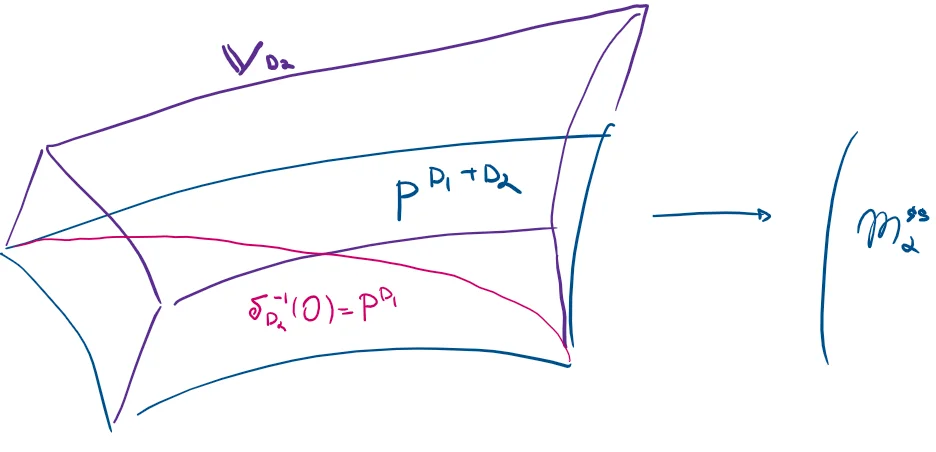 𝕍_{D_2}
P^{D_1+D_2}
s_{D_2}^{-1}(0)=P^{D_1}
M_α^{ss}